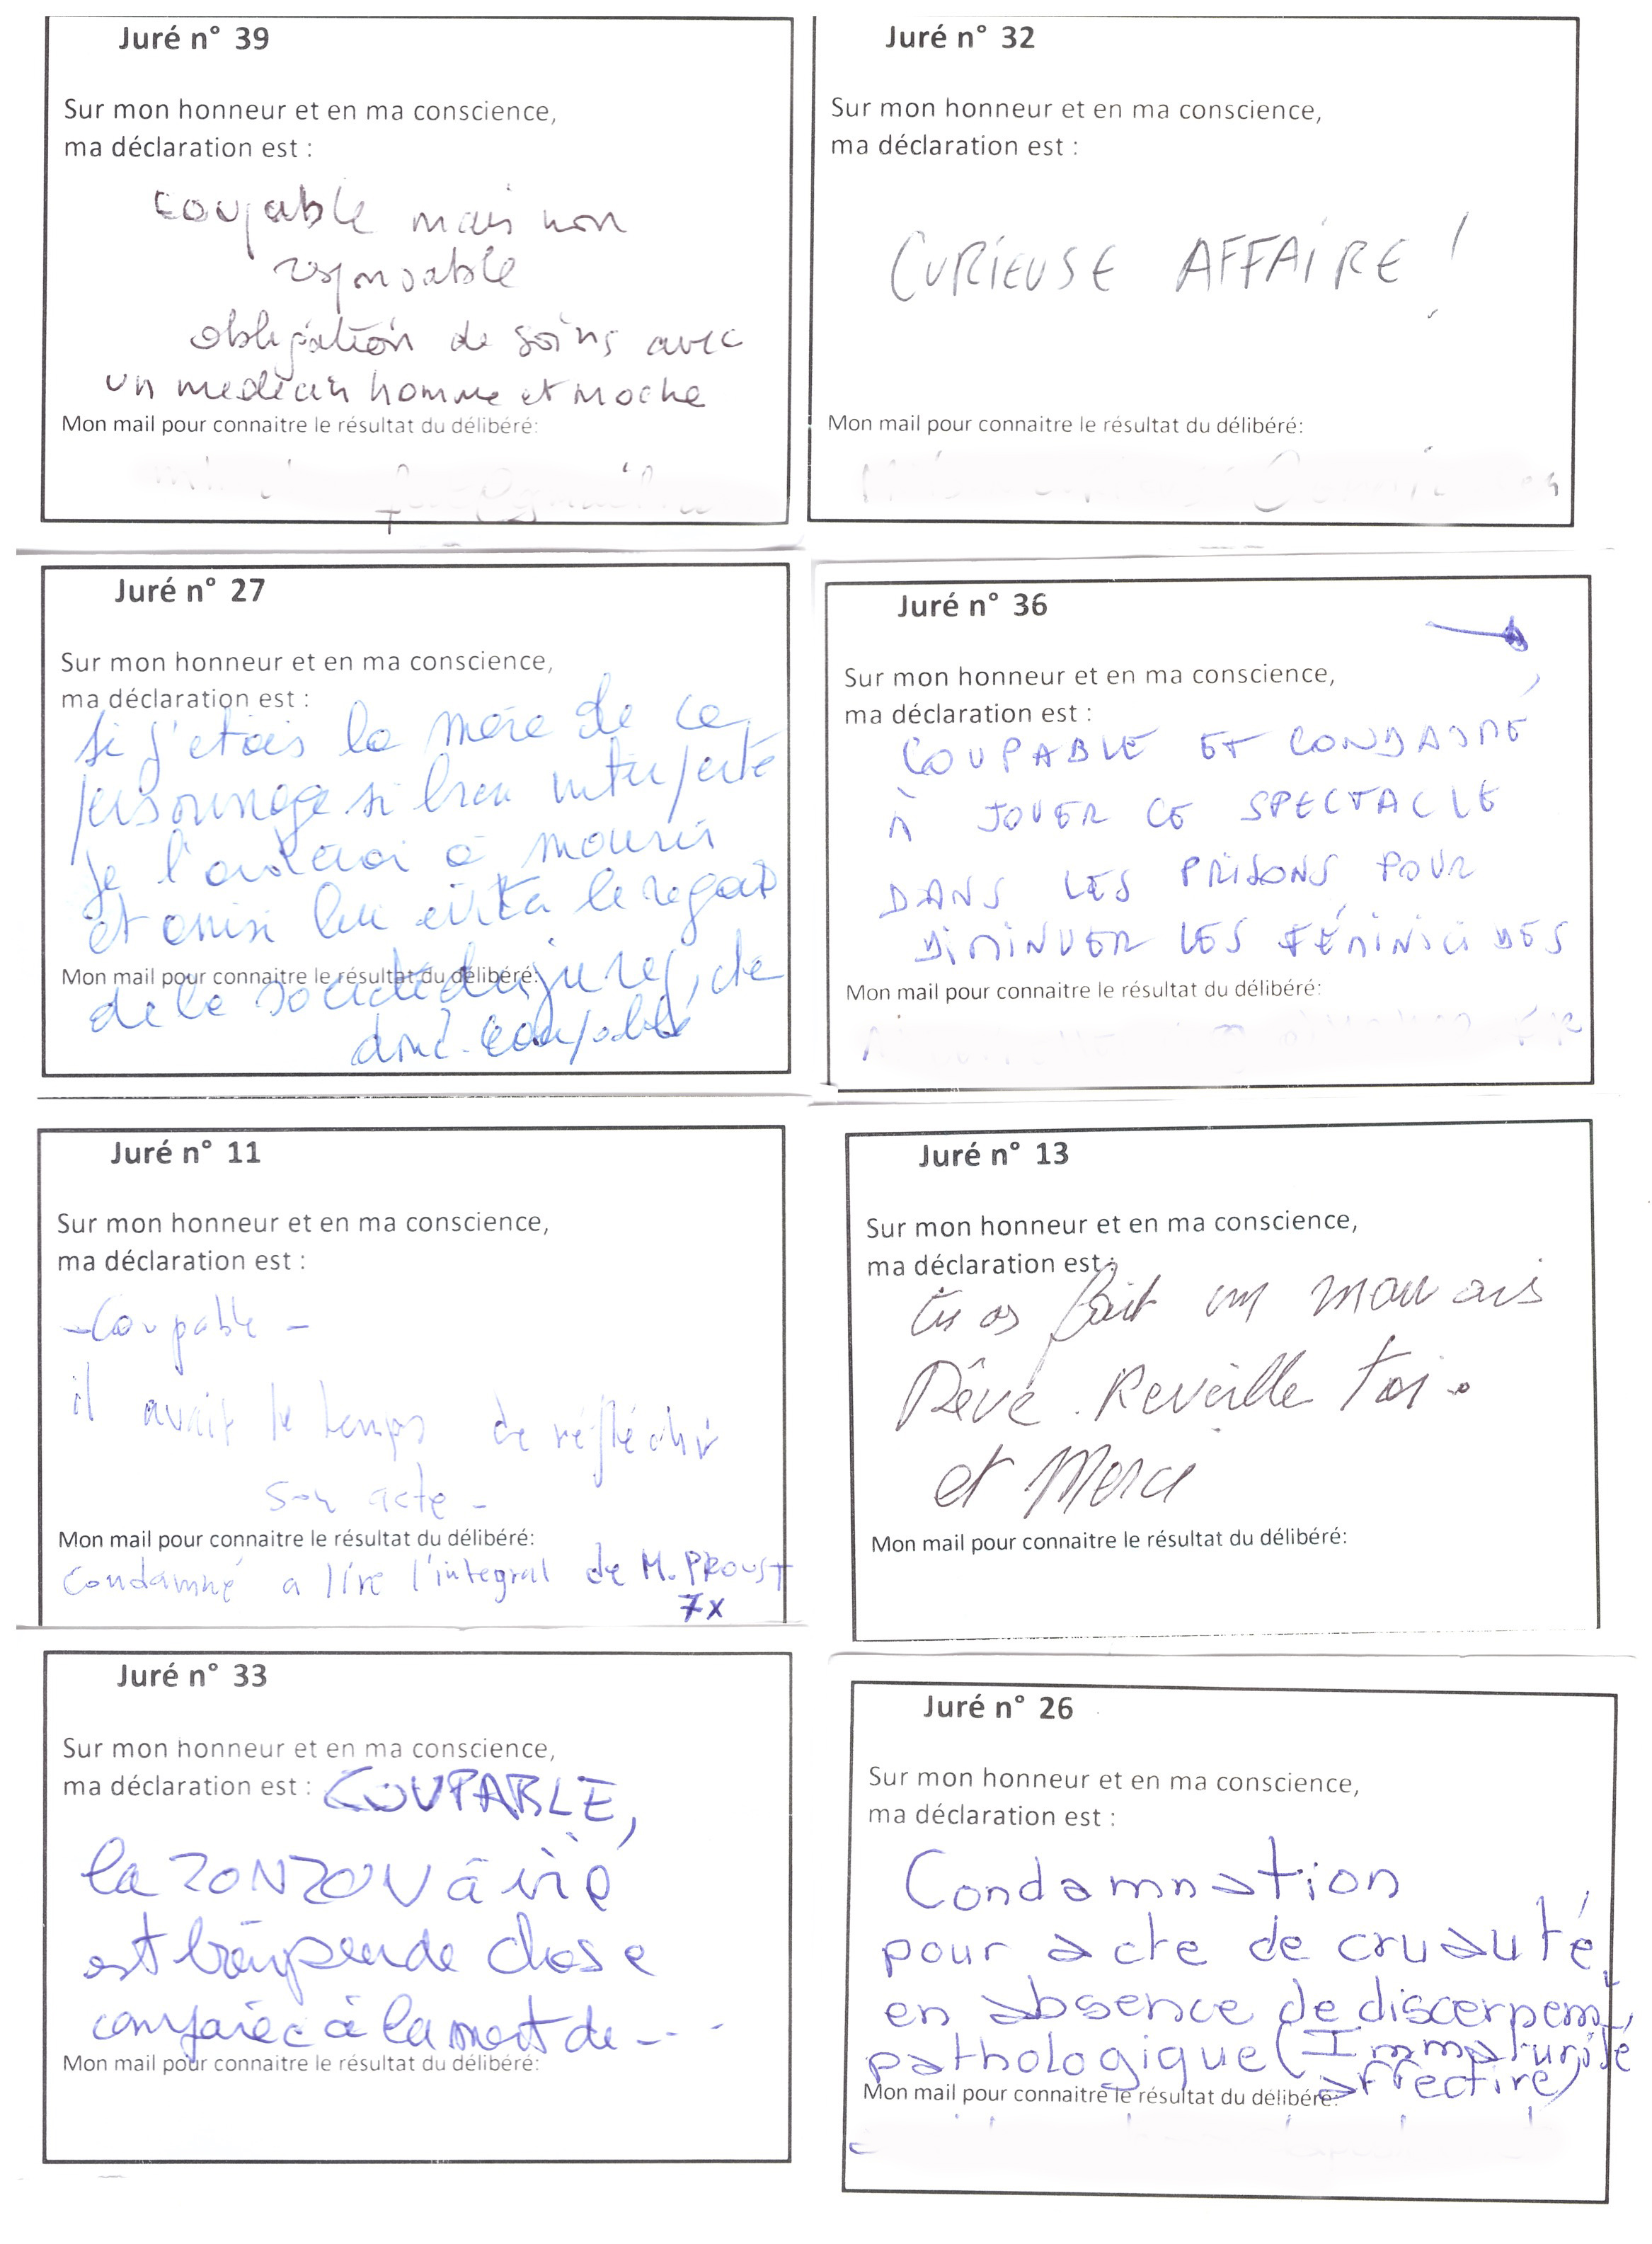 Juré n° 39
Sur mon honneur et en ma conscience,
ma déclaration est :
coupable mais non
responsable
obligation de soins avec
un medecin homme et moche
Mon mail pour connaitre le résultat du délibéré:
Juré n° 32
Sur mon honneur et en ma conscience,
ma déclaration est :
CURIEUSE AFFAIRE !
Mon mail pour connaitre le résultat du délibéré:
Juré n° 27
Sur mon honneur et en ma conscience,
ma déclaration est :
si j'etais la mère de ce
personnage si bien interpreté
je l'aiderai à mourir
et ainsi lui évita le regard
de la société des jures, etc
donc coupable
Mon mail pour connaitre le résultat du délibéré:
Juré n° 36
Sur mon honneur et en ma conscience,
ma déclaration est :
COUPABLE ET CONDAMNÉ
À JOUER CE SPECTACLE
DANS LES PRISONS POUR
DIMINUER LES FÉMINICIDES
Mon mail pour connaitre le résultat du délibéré:
Juré n° 11
Sur mon honneur et en ma conscience,
ma déclaration est :
- Coupable -
il avait le temps de réfléchir
son acte -
Mon mail pour connaitre le résultat du délibéré:
Condamné a lire l'integral de M. PROUST
7x
Juré n° 13
Sur mon honneur et en ma conscience,
ma déclaration est :
tu as fait un mauvais
Rêve. Reveille toi.
et Merci
Mon mail pour connaitre le résultat du délibéré:
Juré n° 33
Sur mon honneur et en ma conscience,
ma déclaration est : COUPABLE,
la ZONZON à vie
est bien peu de chose
comparée à la mort de ---
Mon mail pour connaitre le résultat du délibéré:
Juré n° 26
Sur mon honneur et en ma conscience,
ma déclaration est :
Condamnation
pour acte de cruauté,
en absence de discernem,
pathologique (Immaturité
affective)
Mon mail pour connaitre le résultat du délibéré: